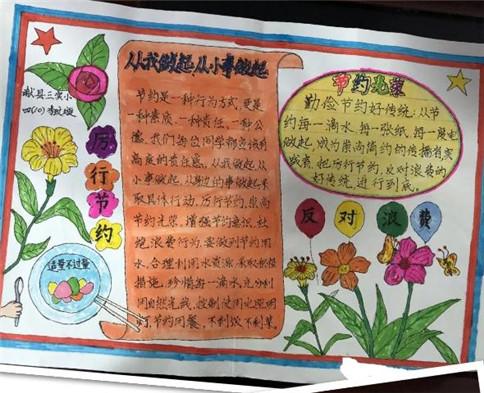 从我做起从小事做起
献县三实小
四(10)
厉行节约
适量不过量
节约是一种行为方式,更是
一种素质、一种责任、一种公
德。我们每位同学都应抱
高度的责任感,从我做起,从
小事做起,从身边的事做起,采
取具体行动,厉行节约,崇尚
节约光荣,增强节约意识,杜
绝浪费行为,要做到节约用
水,合理利用水资源,采取积极
措施,珍惜每一滴水,充分利
用自然光线,控制使用电源照
灯,节约用餐,不剩饭不剩菜。
节约光荣
勤俭节约好传统:从节
约每一滴水、每一张纸、每一度电
做起,成为崇尚简约的传播者实
践者,把厉行节约,反对浪费的
好传统,进行到底。
反对浪费